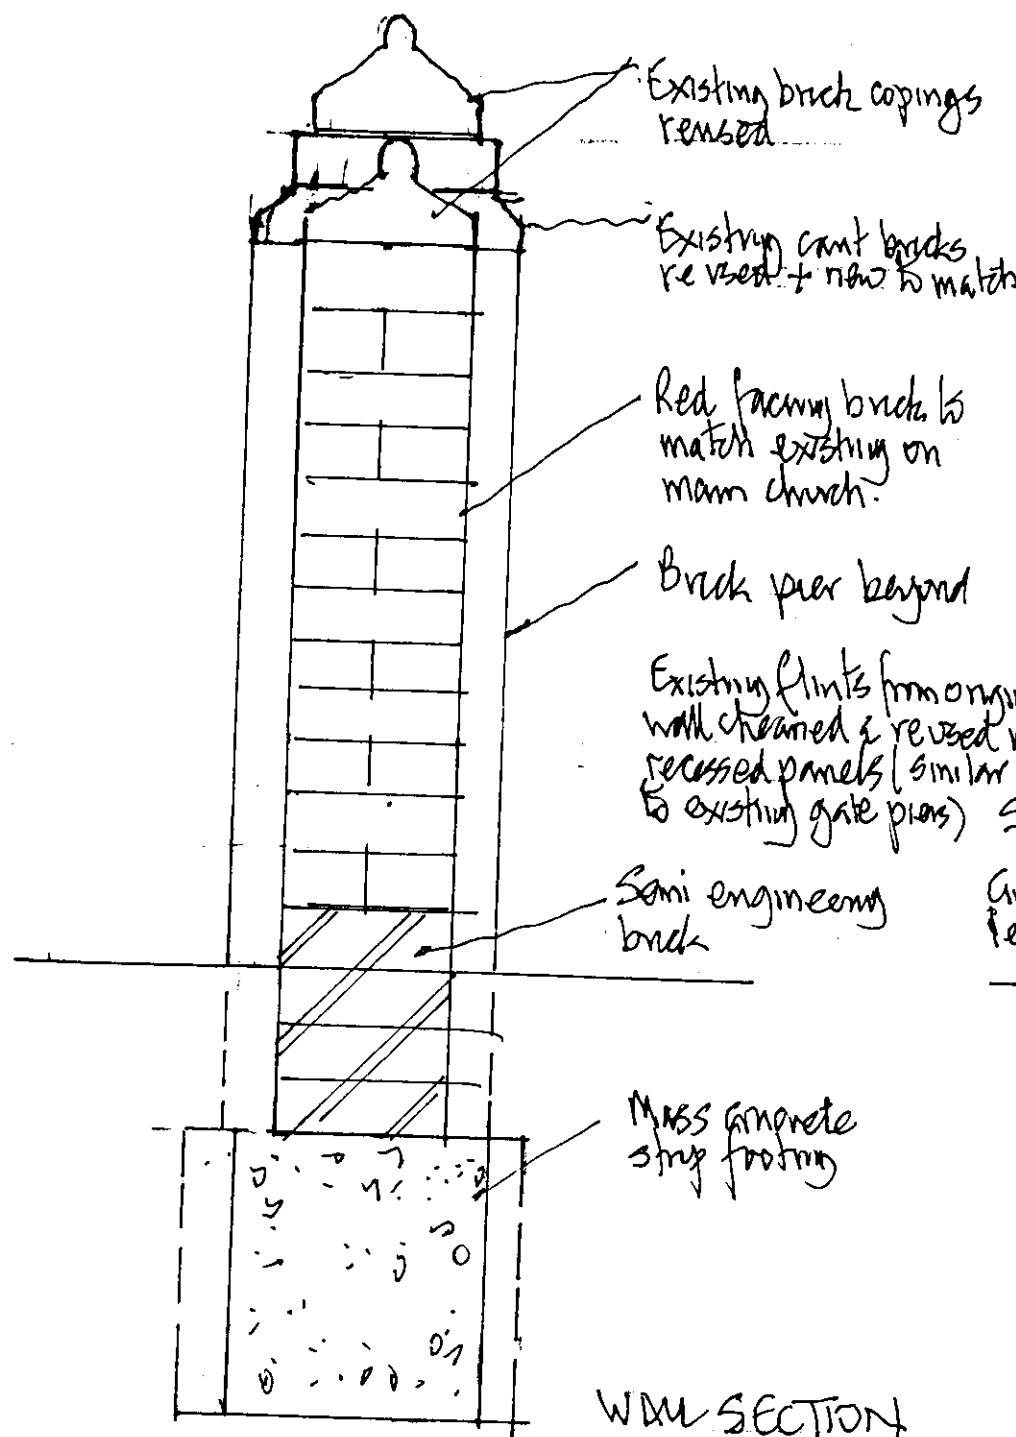 Existing brick copings
reused
Existing cant bricks
reused + new to match
Red facing brick to
match existing on
main church.
Brick pier beyond
Existing flints from
wall cleaned & reused
recessed panels (similar
to existing gate piers)
Semi engineering
brick
Mass concrete
strip footing
WALL SECTION